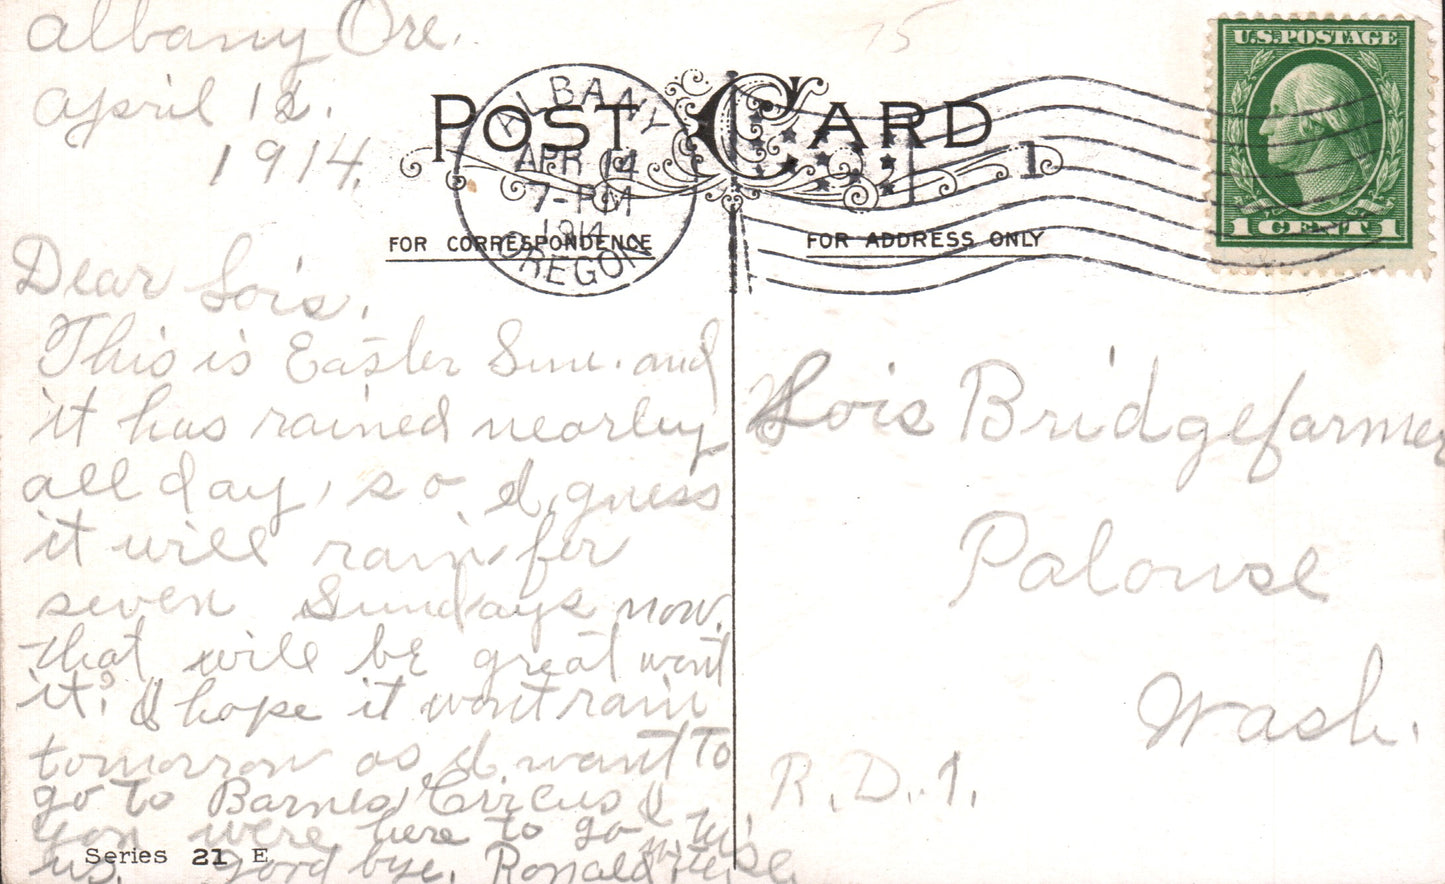 Albany Ore.
April 12.
1914.
Dear Lois.
This is Easter Sun. and
it has rained nearly
all day, so I guess
it will rain for
seven Sundays now.
that will be great wont
it? I hope it wont rain
tomorrow as I want to
go to Barnes Circus I
you were here to go
us. good bye. Ronald
Series 21 E
75
POST CARD
FOR CORRESPONDENCE
FOR ADDRESS ONLY
ALBANY
APR 14
7-PM
1914
OREGON
1
U.S.POSTAGE
1 CENT 1
Lois Bridgefarmer
Palouse
Wash.
R.D.1.